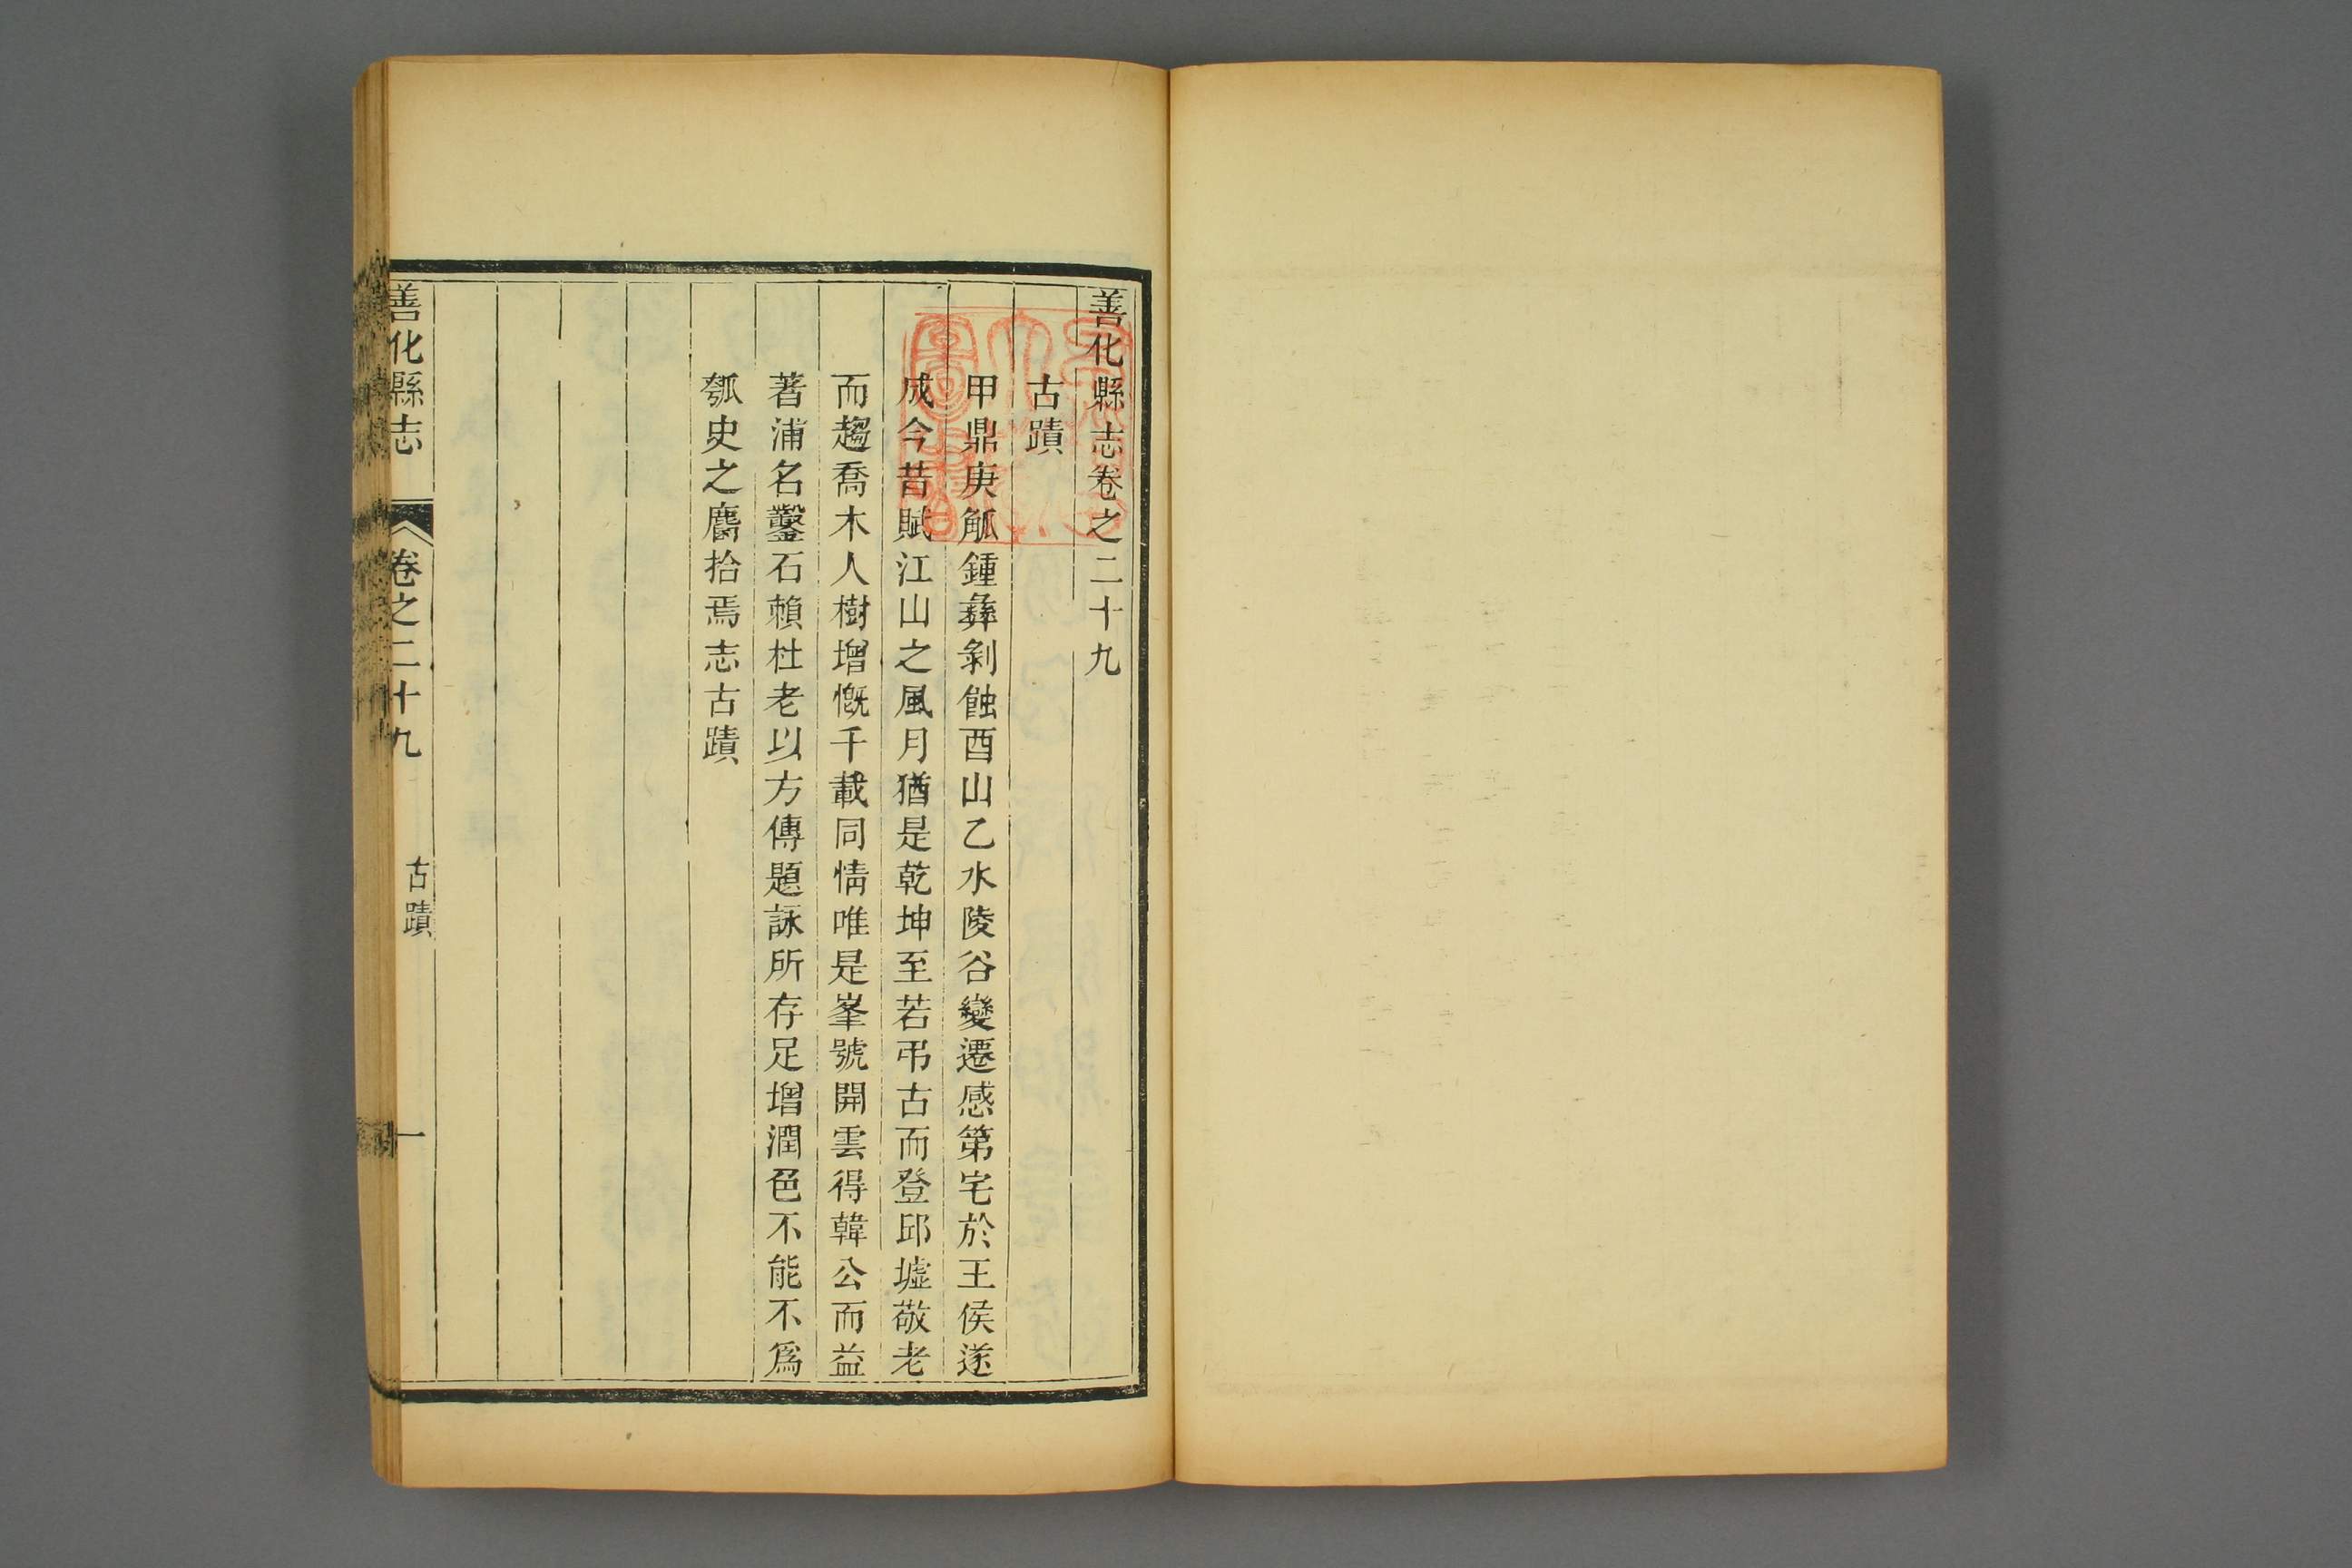 善化縣志卷之二十九
古蹟
甲鼎庚觚鍾彝剝蝕酉山乙水陵谷變遷感第宅於王侯遂
成今昔賦江山之風月猶是乾坤至若弔古而登邱墟敬老
而趨喬木人樹增慨千載同情唯是峯號開雲得韓公而益
著浦名鑿石賴杜老以方傳題詠所存足增潤色不能不爲
瓠史之麕拾焉志古蹟
善化縣志 卷之二十九 古蹟 一